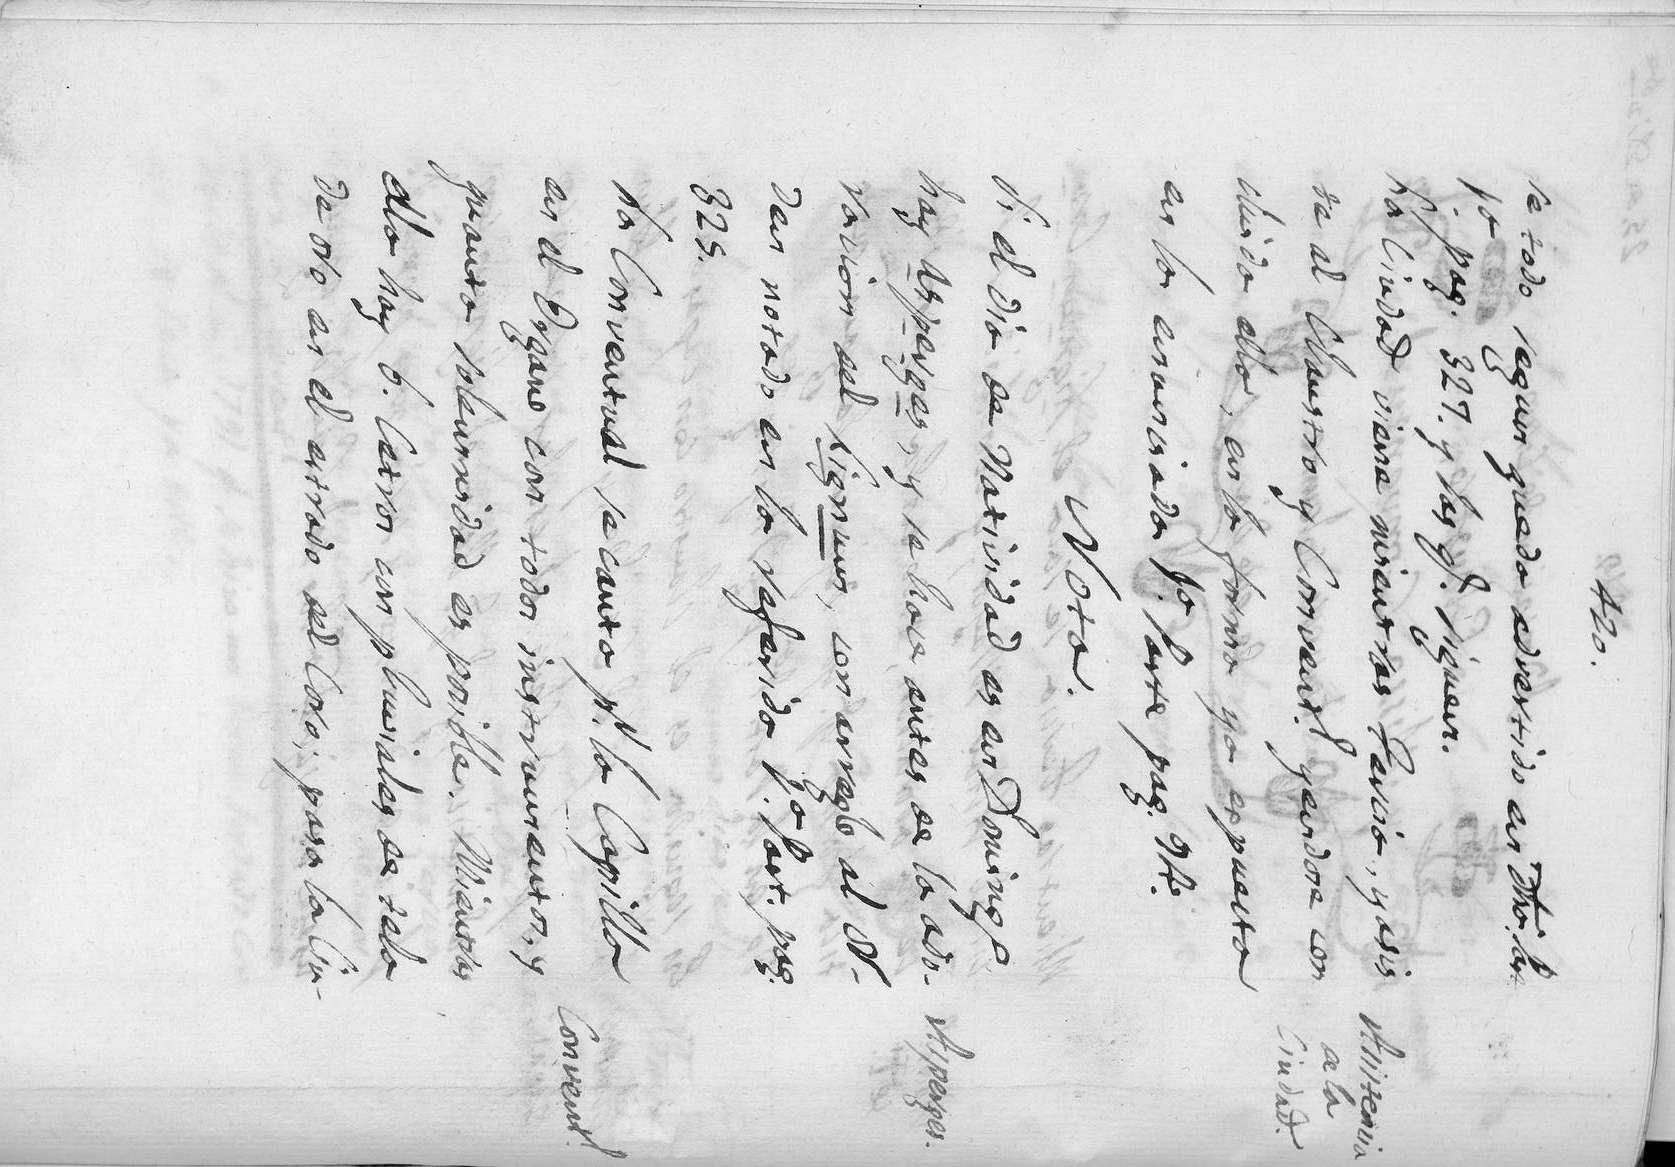 420.
se todo segun queda advertido en dha. part.
1ª. pag. 327. y las q.e siguen.
La Ciudad viene mientras Tercia, y asis
te al Claustro y Convent.l yendose con
cluida ella, en la forma ya espuesta
en la enunciada 1ª. parte pag. 94.
Asistencia
de la
Ciudad.
Nota.
Si el dia de Natividad es en Doming.o
hay Asperges, y se hace antes de la ado-
racion del Lignum, con arreglo al or-
den notado en la referida 1ª. part. pag.
325.
Asperges.
La Conventual se canta p.r la Capilla
en el Organo con todos instrumentos, y
quanta solemnidad es posible. Mientras
ella hay 6. Cetros con pluviales de tela
de oro en el entrado del Coro; pasa la Ciu-
Convent.l